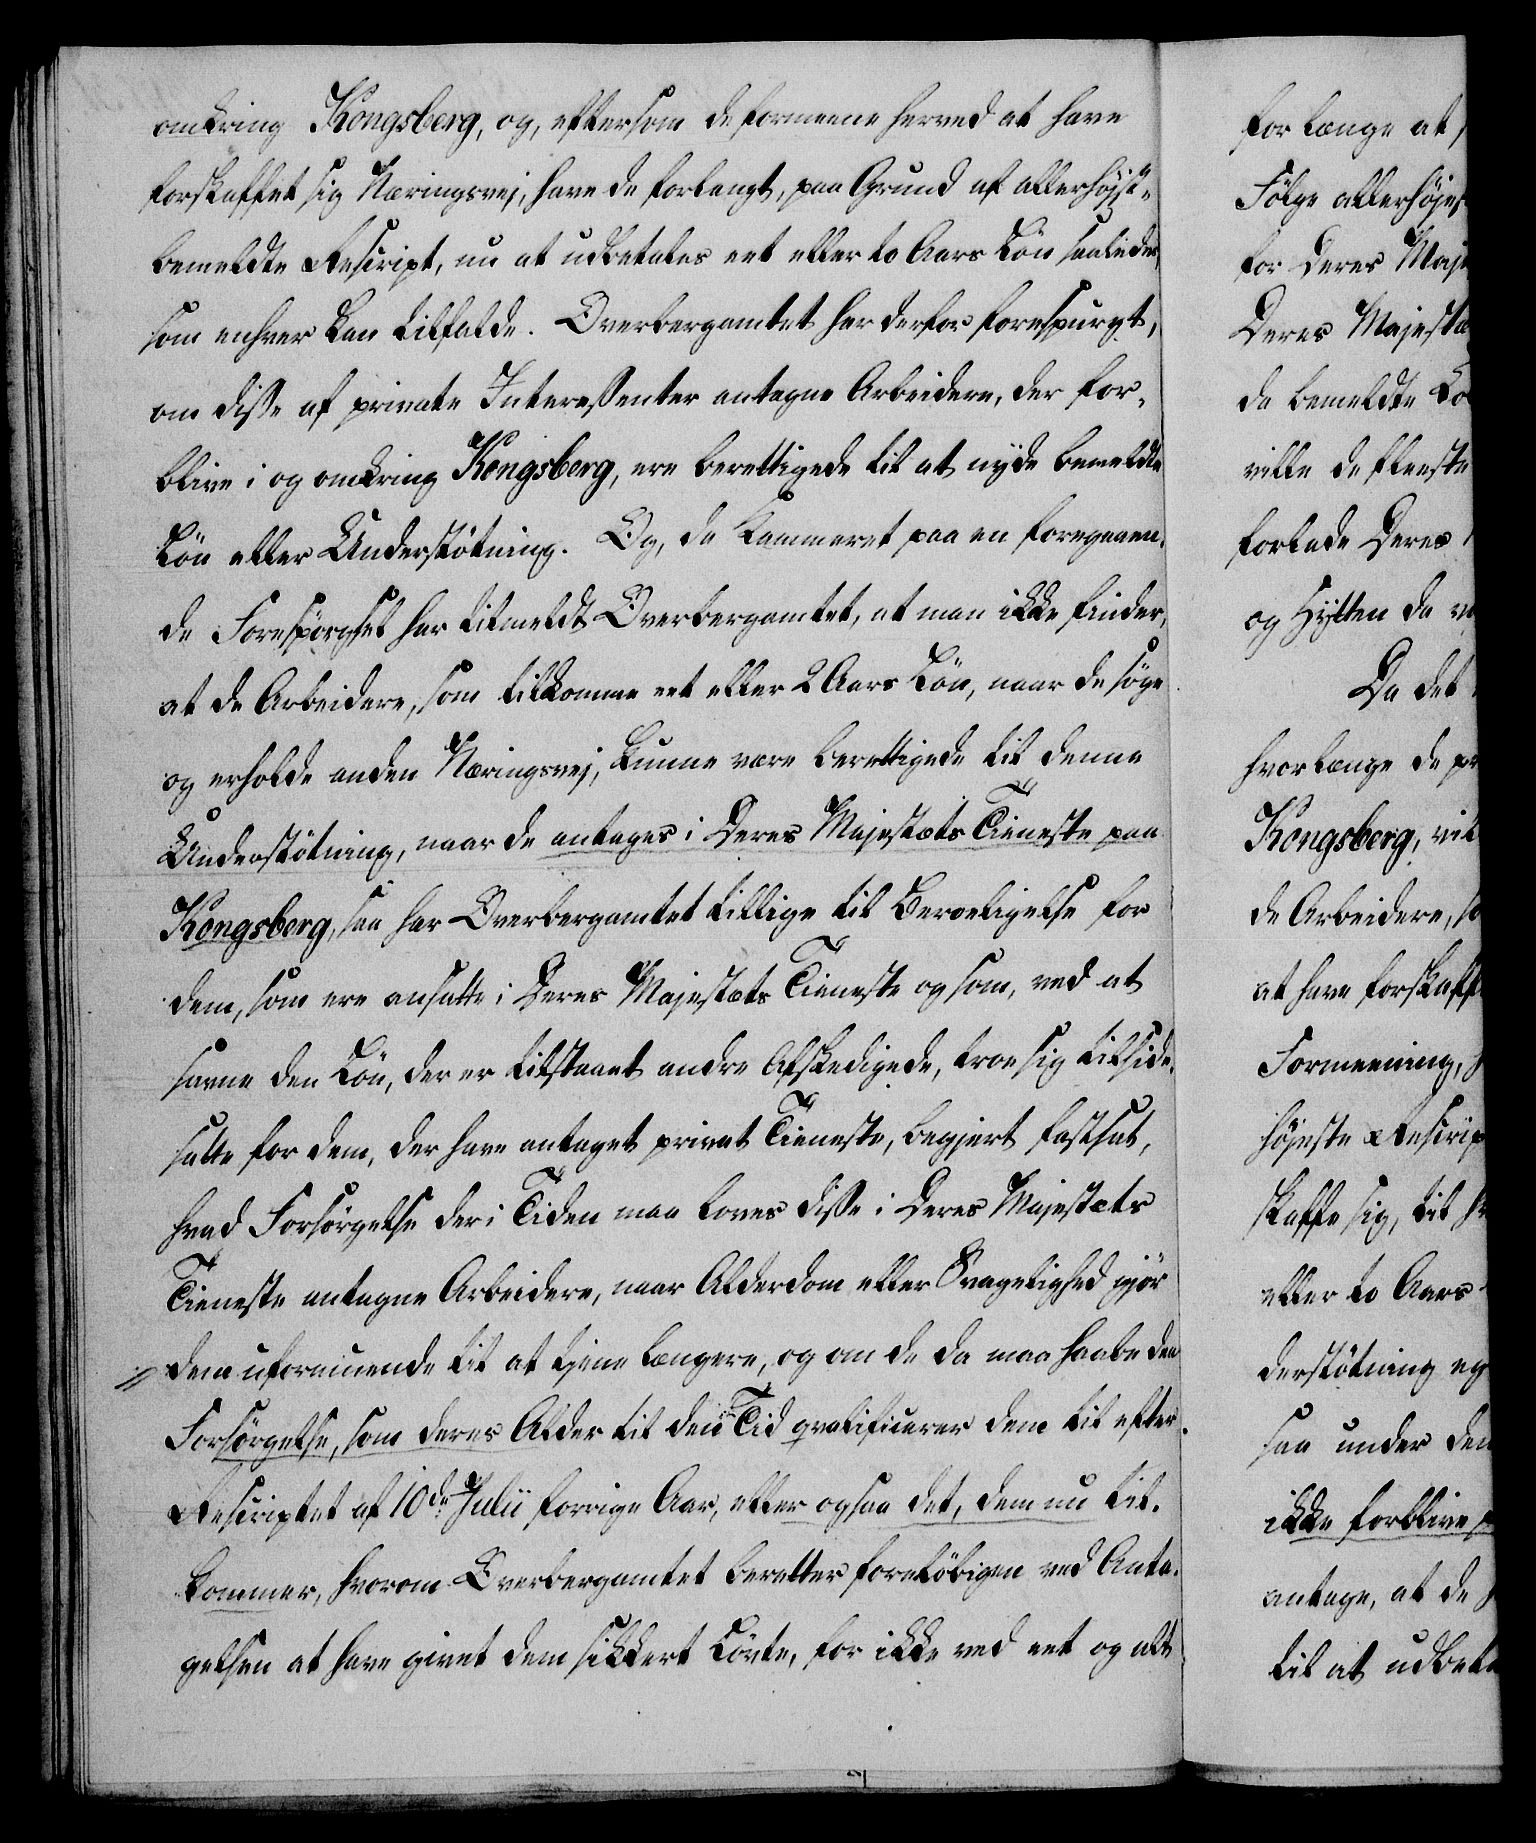 omkring Kongsberg, og, eftersom de formeene herved at have
forskaffet sig Næringsvej, have de forlangt, paa Grund af allerhøjst-
bemeldte Rescript, nu at udbetales eet eller to Aars Løn saaledes,
som enhver kan tilfalde. Overbergamtet har derfor forespurgt,
om disse af private Interessenter antagne Arbeidere, der for-
blive i og omkring Kongsberg, ere berettigede til at nyde bemeldte
Løn eller Understøtning. Og, da Kammeret paa en foregaaen-
de Forespørgsel har tilmeldt Overbergamtet, at man ikke finder,
at de Arbeidere, som tilkomme eet eller 2 Aars Løn, naar de søge
og erholde anden Næringsvej, kunne være berettigede til denne
Understøtning, naar de antages i Deres Majestæts Tieneste paa
Kongsberg, saa har Overbergamtet tillige til Beroeligelse for
dem, som ere ansatte i Deres Majestæts Tieneste og som, ved at
savne den Løn, der er tilstaaet andre Afskedigede, troe sig tilside-
satte for dem, der have antaget privat Tieneste, begjert fastsat,
hvad Forsørgelse der i Tiden maa loves disse i Deres Majestæts
Tieneste antagne Arbeidere, naar Alderdom eller Svagelighed gjør
dem uformuende til at tjene længere, og om de da maa haabe den
Forsørgelse, som deres Alder til den Tid qvalificerer dem til efter
Rescriptet af 10de Julii forrige Aar, eller ogsaa det, dem nu til-
kommer, hvorom Overbergamtet beretter foreløbigen ved Anta-
gelsen at have givet dem sikkert Løvte, for ikke ved eet og alt
for længe at
Følge allerhøjes
for Deres Maje
Deres Majestæ
da bemeldte Lø
ville de fleeste
forlade Deres
og Hytten da
Da det
hvorlænge de pr
Kongsberg, vil
de Arbeidere, so
at have forskaff
Formeening,
højeste Rescrip
skaffe sig, til
eller to Aars
derstøtning
saa under den
ikke forblive
antage, at de
til at udbeta